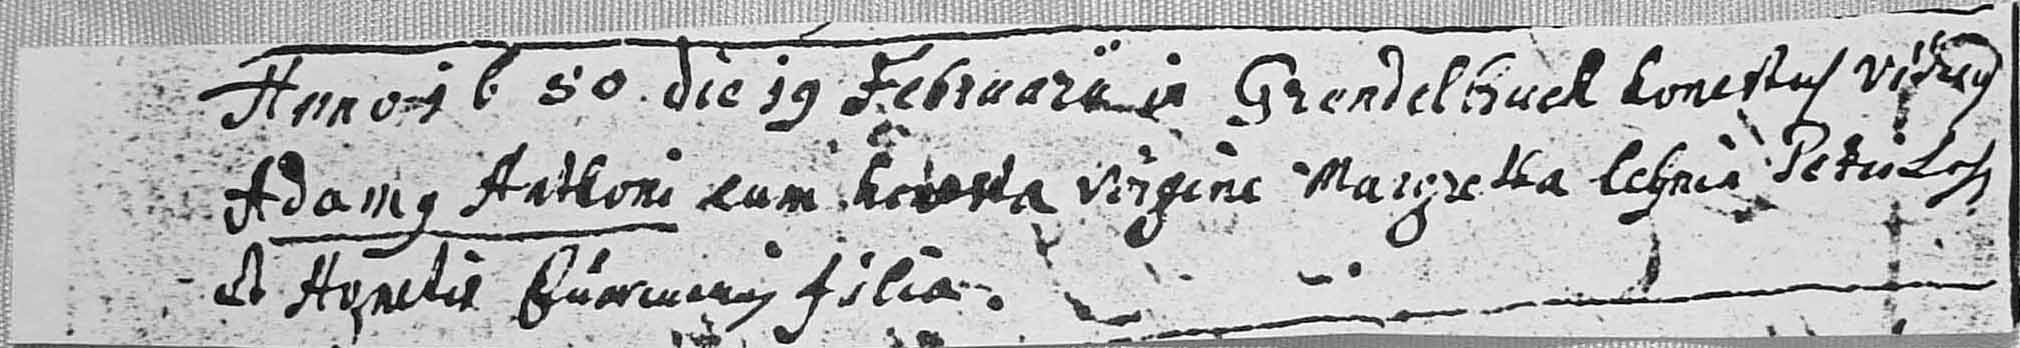 Anno 1650 die 19 Februarii in Grendelbruch honestus
Adamus Anthoni cum honesta virgine Margretha Petri
et filia.